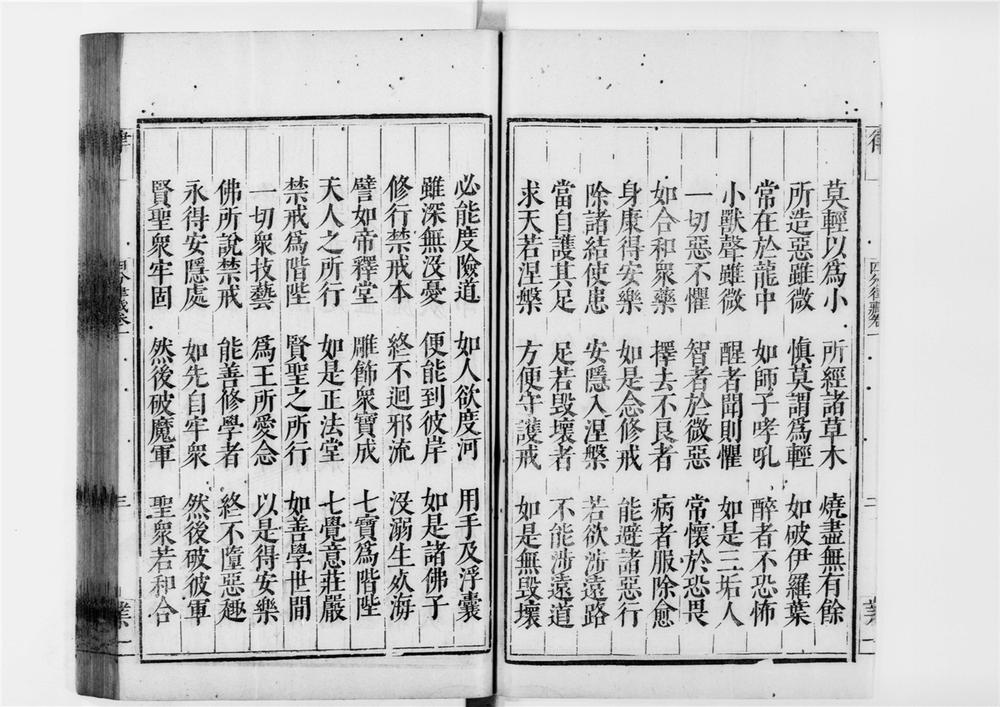 莫輕以為小　所經諸草木　燒盡無有餘
所造惡雖微　慎莫謂為輕　如破伊羅葉
常在於龍中　如師子哮吼　醉者不恐怖
小獸聲雖微　醒者聞則懼　如是三垢人
一切惡不懼　智者於微惡　常懷於恐畏
如合和眾藥　擇去不良者　病者服除愈
身康得安樂　如是念修戒　能避諸惡行
除諸結使患　安隱入涅槃　若欲涉遠路
當自護其足　足若毀壞者　不能涉遠道
求天若涅槃　方便守護戒　如是無毀壞
必能度險道　如人欲度河　用手及浮囊
雖深無沒憂　便能到彼岸　如是諸佛子
修行禁戒本　終不迴邪流　沒溺生死海
譬如帝釋堂　雕飾眾寶成　七寶為階陛
天人之所行　如是正法堂　七覺意莊嚴
禁戒為階陛　賢聖之所行　如善學世間
一切眾技藝　為王所愛念　以是得安樂
佛所說禁戒　能善修學者　終不墮惡趣
永得安隱處　如先自牢眾　然後破彼軍
賢聖眾牢固　然後破魔軍　聖眾若和合
三